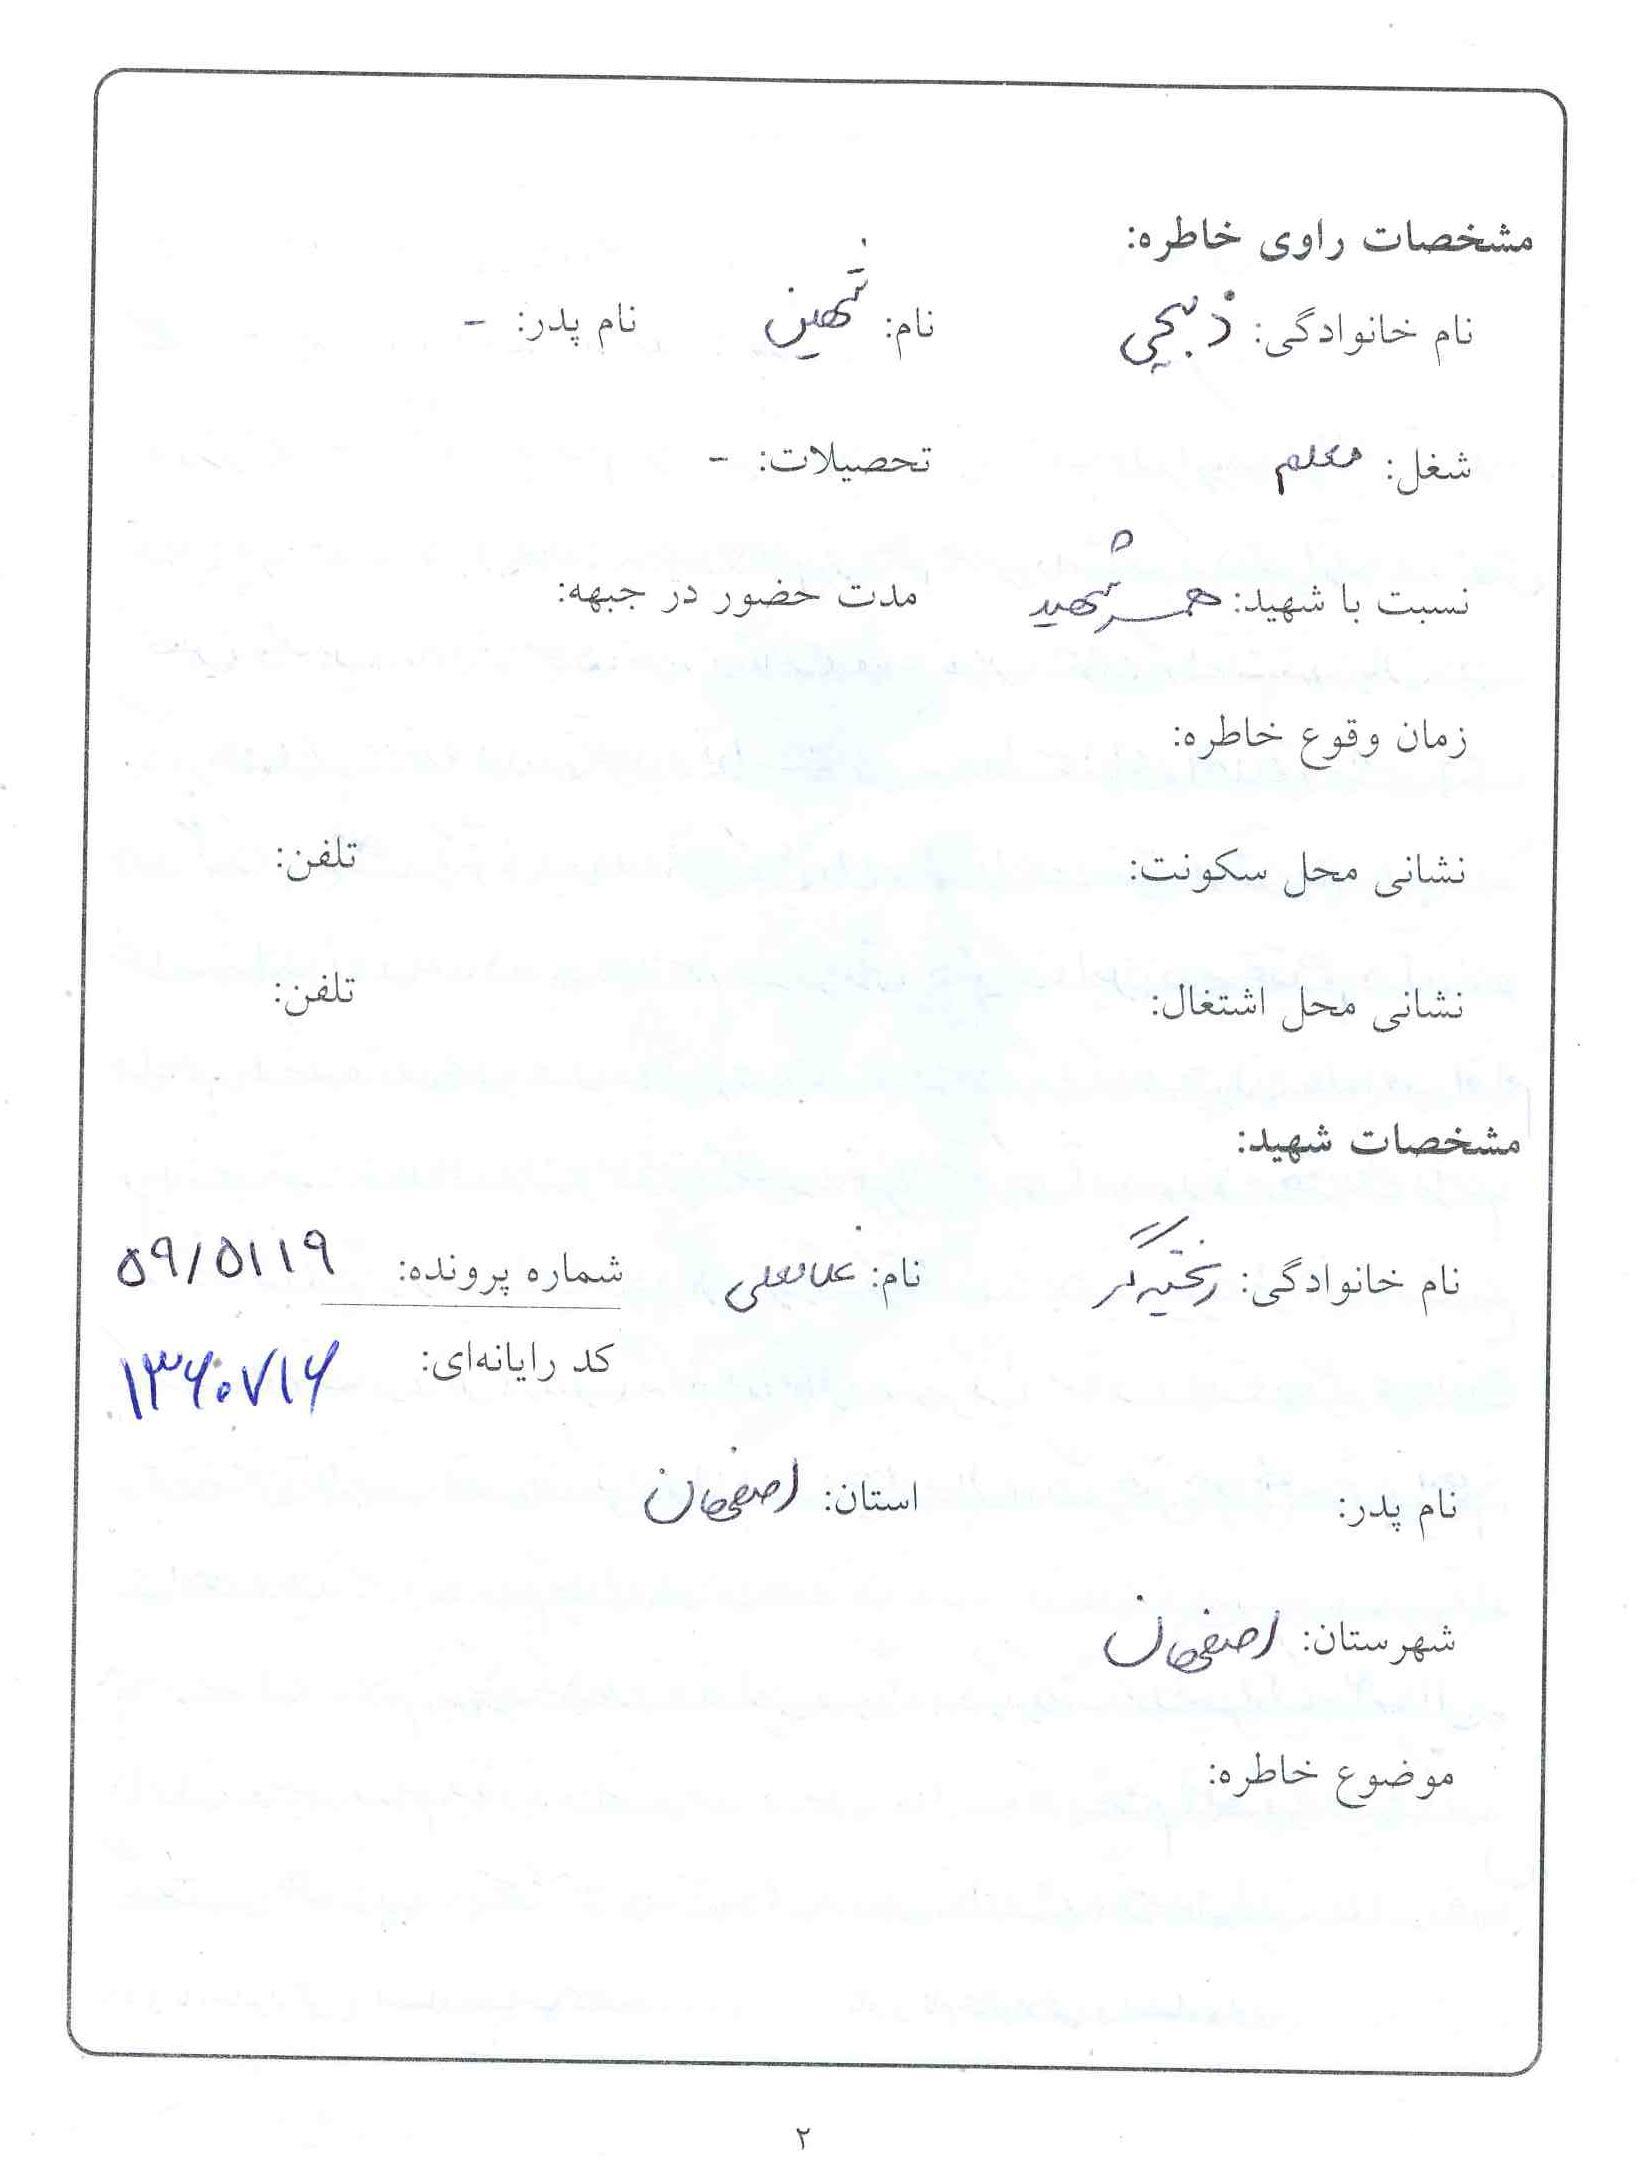 مشخصات راوی خاطره:
نام خانوادگی: ذبیحی نام: شهین نام پدر: -
شغل: معلم تحصیلات: -
نسبت با شهید: همسر شهید مدت حضور در جبهه:
زمان وقوع خاطره:
نشانی محل سکونت: تلفن:
نشانی محل اشتغال: تلفن:
مشخصات شهید:
نام خانوادگی: ریخته‌گر نام: غلامعلی شماره پرونده: ۵۹/۵۱۱۹
کد رایانه‌ای: ۱۳۶۰۷۱۶
نام پدر: استان: اصفهان
شهرستان: اصفهان
موضوع خاطره:
۲